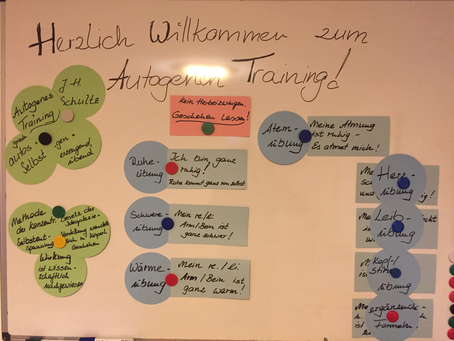 Herzlich Willkommen zum
Autogenen Training!
Autogenes
Training
J.H.
Schultz
autos =
Selbst
gen =
erzeugend,
übend
Methode
der konzentr.
Selbstent-
spannung
Wirkung
ist wissen-
schaftlich
nachgewiesen
Kein Herbeizwingen.
Geschehen Lassen!
Ruhe-
übung
Ich bin ganz
ruhig!
Ruhe kommt ganz von selbst.
Schwere-
übung
Mein re./li.
Arm/Bein ist
ganz schwer!
Wärme-
übung
Mein re./li.
Arm/Bein ist
ganz warm!
Atem-
übung
Meine Atmung
ist ruhig -
Es atmet mich!
Herz-
übung
Leib-
übung
Kopf-/
Stirn-
übung
ergänzende
Formeln